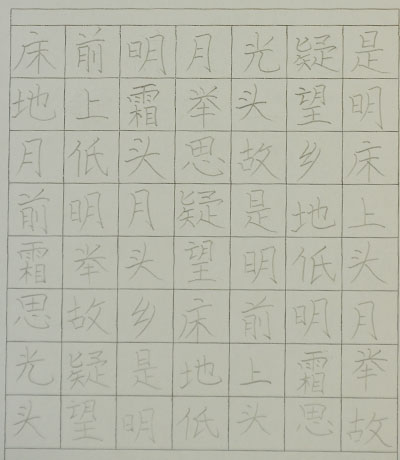 床前明月光疑是
地上霜举头望明
月低头思故乡床
前明月疑是地上
霜举头望明低头
思故乡床前明月
光疑是地上霜举
头望明低头思故